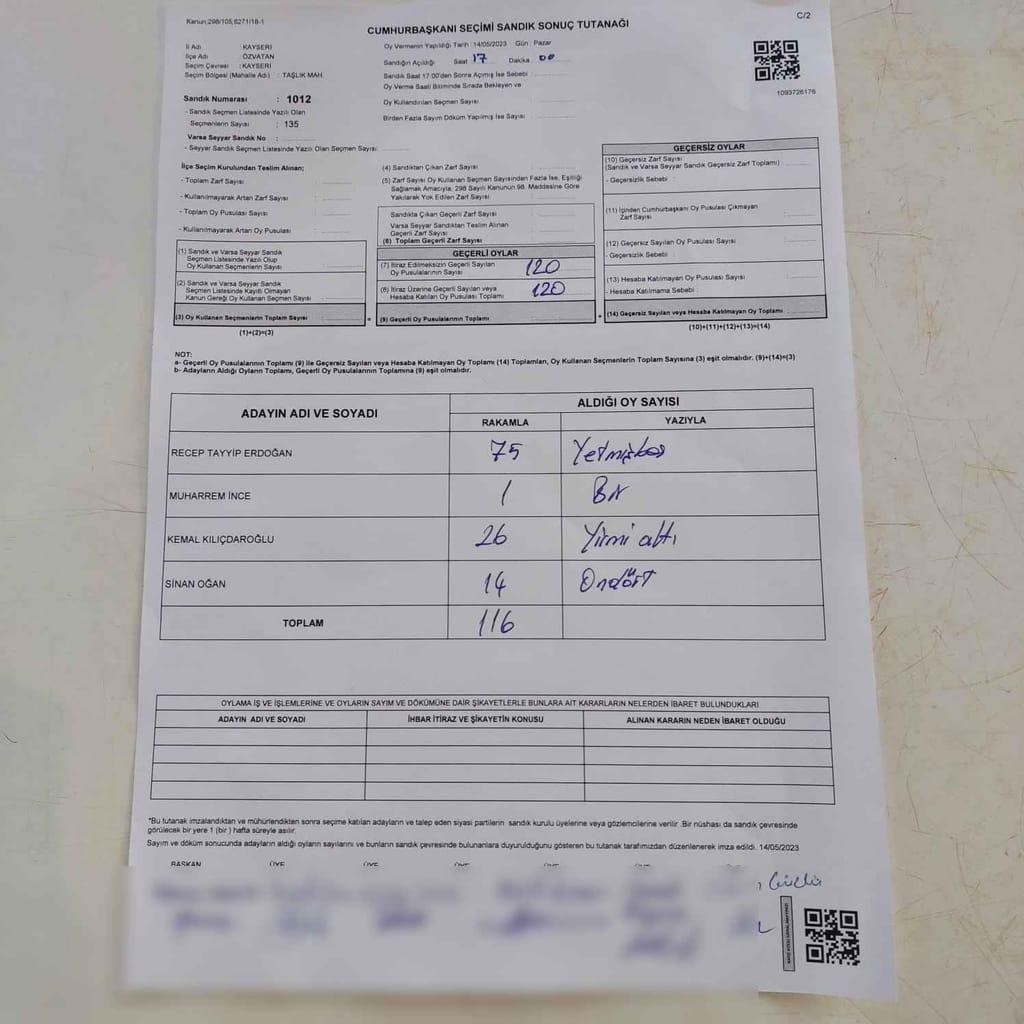 Kanun:298/105,6271/18-1
CUMHURBAŞKANI SEÇİMİ SANDIK SONUÇ TUTANAĞI
C/2
İl Adı : KAYSERİ
İlçe Adı : ÖZVATAN
Seçim Çevresi : KAYSERİ
Seçim Bölgesi (Mahalle Adı) : TAŞLIK MAH.
Sandık Numarası : 1012
- Sandık Seçmen Listesinde Yazılı Olan
Seçmenlerin Sayısı : 135
Varsa Seyyar Sandık No :
- Seyyar Sandık Seçmen Listesinde Yazılı Olan Seçmen Sayısı:
Oy Vermenin Yapıldığı Tarih : 14/05/2023 Gün : Pazar
Sandığın Açıldığı Saat 17 Dakika 00
Sandık Saat 17:00'den Sonra Açılmış İse Sebebi :
Oy Verme Saati Bitiminde Sırada Bekleyen ve
Oy Kullandırılan Seçmen Sayısı :
Birden Fazla Sayım Döküm Yapılmış İse Sayısı :
1093726176
İlçe Seçim Kurulundan Teslim Alınan;
- Toplam Zarf Sayısı :
- Kullanılmayarak Artan Zarf Sayısı :
- Toplam Oy Pusulası Sayısı :
- Kullanılmayarak Artan Oy Pusulası :
(1) Sandık ve Varsa Seyyar Sandık
Seçmen Listesinde Yazılı Olup
Oy Kullanan Seçmenlerin Sayısı :
(2) Sandık ve Varsa Seyyar Sandık
Seçmen Listesinde Kayıtlı Olmayan
Kanun Gereği Oy Kullanan Seçmen Sayısı :
(3) Oy Kullanan Seçmenlerin Toplam Sayısı :
(1)+(2)=(3)
(4) Sandıktan Çıkan Zarf Sayısı :
(5) Zarf Sayısı Oy Kullanan Seçmen Sayısından Fazla İse, Eşitliği
Sağlamak Amacıyla, 298 Sayılı Kanunun 98. Maddesine Göre
Yakılarak Yok Edilen Zarf Sayısı :
Sandıkta Çıkan Geçerli Zarf Sayısı :
Varsa Seyyar Sandıktan Teslim Alınan
Geçerli Zarf Sayısı :
(6) Toplam Geçerli Zarf Sayısı :
GEÇERLİ OYLAR
(7) İtiraz Edilmeksizin Geçerli Sayılan
Oy Pusulalarının Sayısı : 120
(8) İtiraz Üzerine Geçerli Sayılan veya
Hesaba Katılan Oy Pusulası Toplamı : 120
(9) Geçerli Oy Pusulalarının Toplamı :
GEÇERSİZ OYLAR
(10) Geçersiz Zarf Sayısı
(Sandık ve Varsa Seyyar Sandık Geçersiz Zarf Toplamı) :
- Geçersizlik Sebebi :
(11) İçinden Cumhurbaşkanı Oy Pusulası Çıkmayan
Zarf Sayısı :
(12) Geçersiz Sayılan Oy Pusulası Sayısı :
- Geçersizlik Sebebi :
(13) Hesaba Katılmayan Oy Pusulası Sayısı :
- Hesaba Katılmama Sebebi :
(14) Geçersiz Sayılan veya Hesaba Katılmayan Oy Toplamı :
(10)+(11)+(12)+(13)=(14)
NOT:
a- Geçerli Oy Pusulalarının Toplamı (9) ile Geçersiz Sayılan veya Hesaba Katılmayan Oy Toplamı (14) Toplamları, Oy Kullanan Seçmenlerin Toplam Sayısına (3) eşit olmalıdır. (9)+(14)=(3)
b- Adayların Aldığı Oyların Toplamı, Geçerli Oy Pusulalarının Toplamına (9) eşit olmalıdır.
ADAYIN ADI VE SOYADI ALDIĞI OY SAYISI
RAKAMLA YAZIYLA
RECEP TAYYİP ERDOĞAN 75 Yetmişbeş
MUHARREM İNCE 1 Bir
KEMAL KILIÇDAROĞLU 26 Yirmi altı
SİNAN OĞAN 14 Ondört
TOPLAM 116
OYLAMA İŞ VE İŞLEMLERİNE VE OYLARIN SAYIM VE DÖKÜMÜNE DAİR ŞİKAYETLERLE BUNLARA AİT KARARLARIN NELERDEN İBARET BULUNDUKLARI
ADAYIN ADI VE SOYADI İHBAR İTİRAZ VE ŞİKAYETİN KONUSU ALINAN KARARIN NEDEN İBARET OLDUĞU
*Bu tutanak imzalandıktan ve mühürlendikten sonra seçime katılan adayların ve talep eden siyasi partilerin sandık kurulu üyelerine veya gözlemcilerine verilir .Bir nüshası da sandık çevresinde
görülecek bir yere 1 (bir ) hafta süreyle asılır.
Sayım ve döküm sonucunda adayların aldığı oyların sayılarını ve bunların sandık çevresinde bulunanlara duyurulduğunu gösteren bu tutanak tarafımızdan düzenlenerek imza edildi. 14/05/2023
BAŞKAN ÜYE ÜYE ÜYE ÜYE ÜYE